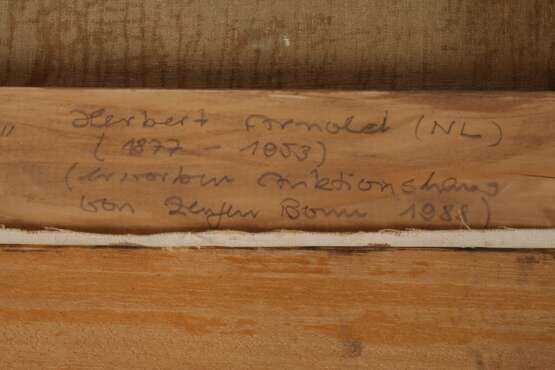 " Herbert Arnold (NL)
(1877 - 1953)
(erworben Auktionshaus
von Zengen Bonn 1988)